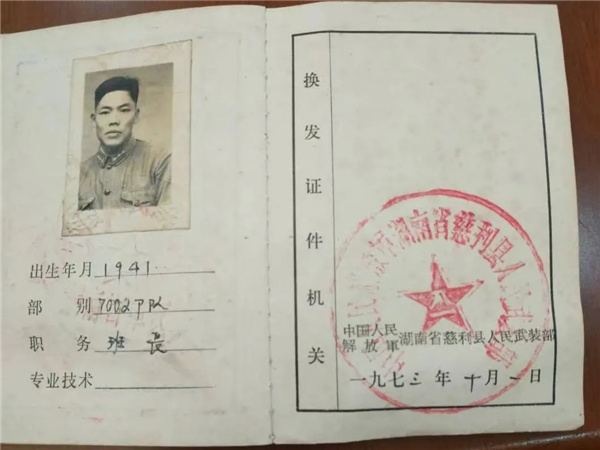 出生年月 1941
部别 7002部队
职务 班长
专业技术
换发证件机关
中国人民
解放軍 湖南省慈利县人民武装部
一九七三年十月一日
湖南省慈利县人民
八一